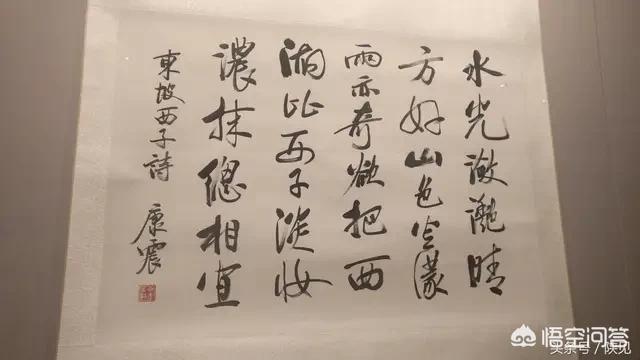 水光潋滟晴
方好山色空濛
雨亦奇欲把西
湖比西子淡妆
濃抹總相宜
東坡西子詩
康震
悟空问答
头条号